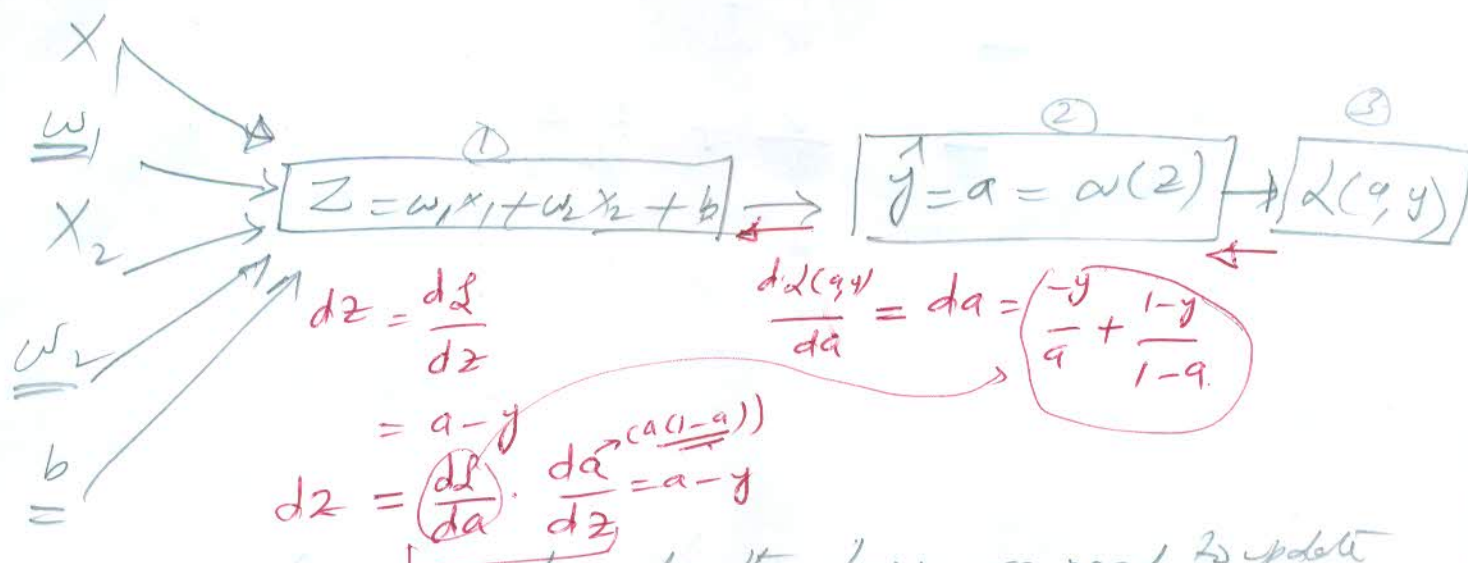 X
w₁
X₂
w₂
b
①
Z = w₁x₁ + w₂x₂ + b
②
ŷ = a = σ(z)
③
L(a, y)
dz = dL/dz
= a - y
dz = dL/da · da/dz = a - y
(a(1-a))
dL(a,y)/da = da = -y/a + (1-y)/(1-a)
need to update